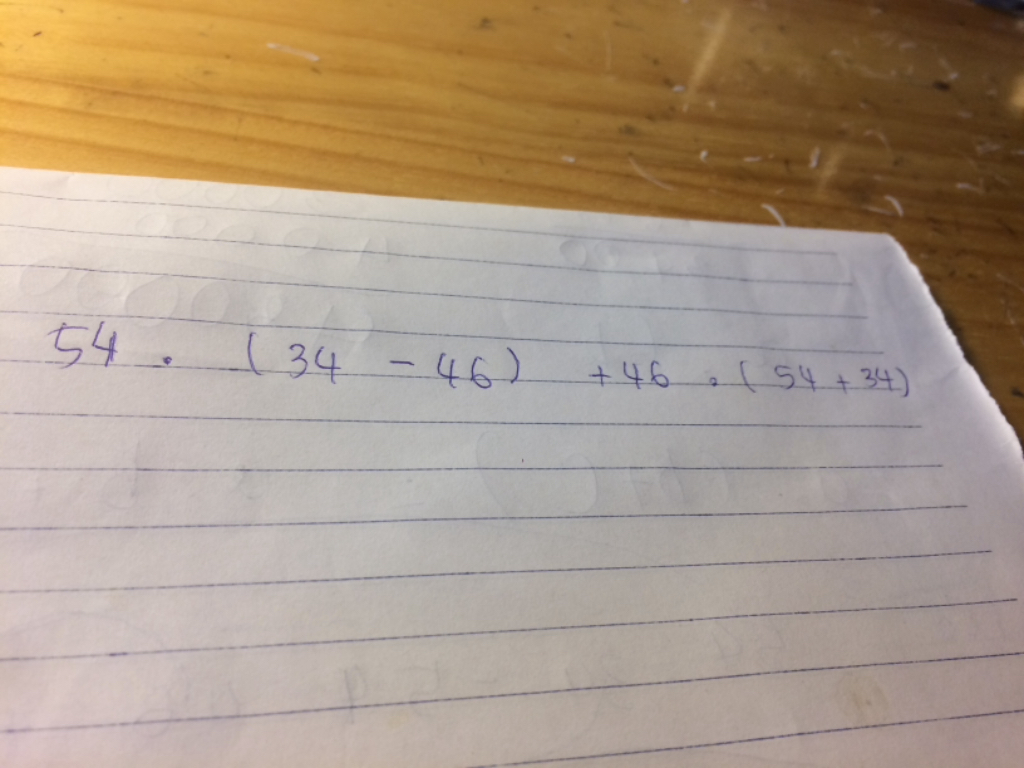 54 . (34 - 46) + 46 . (54 + 34)